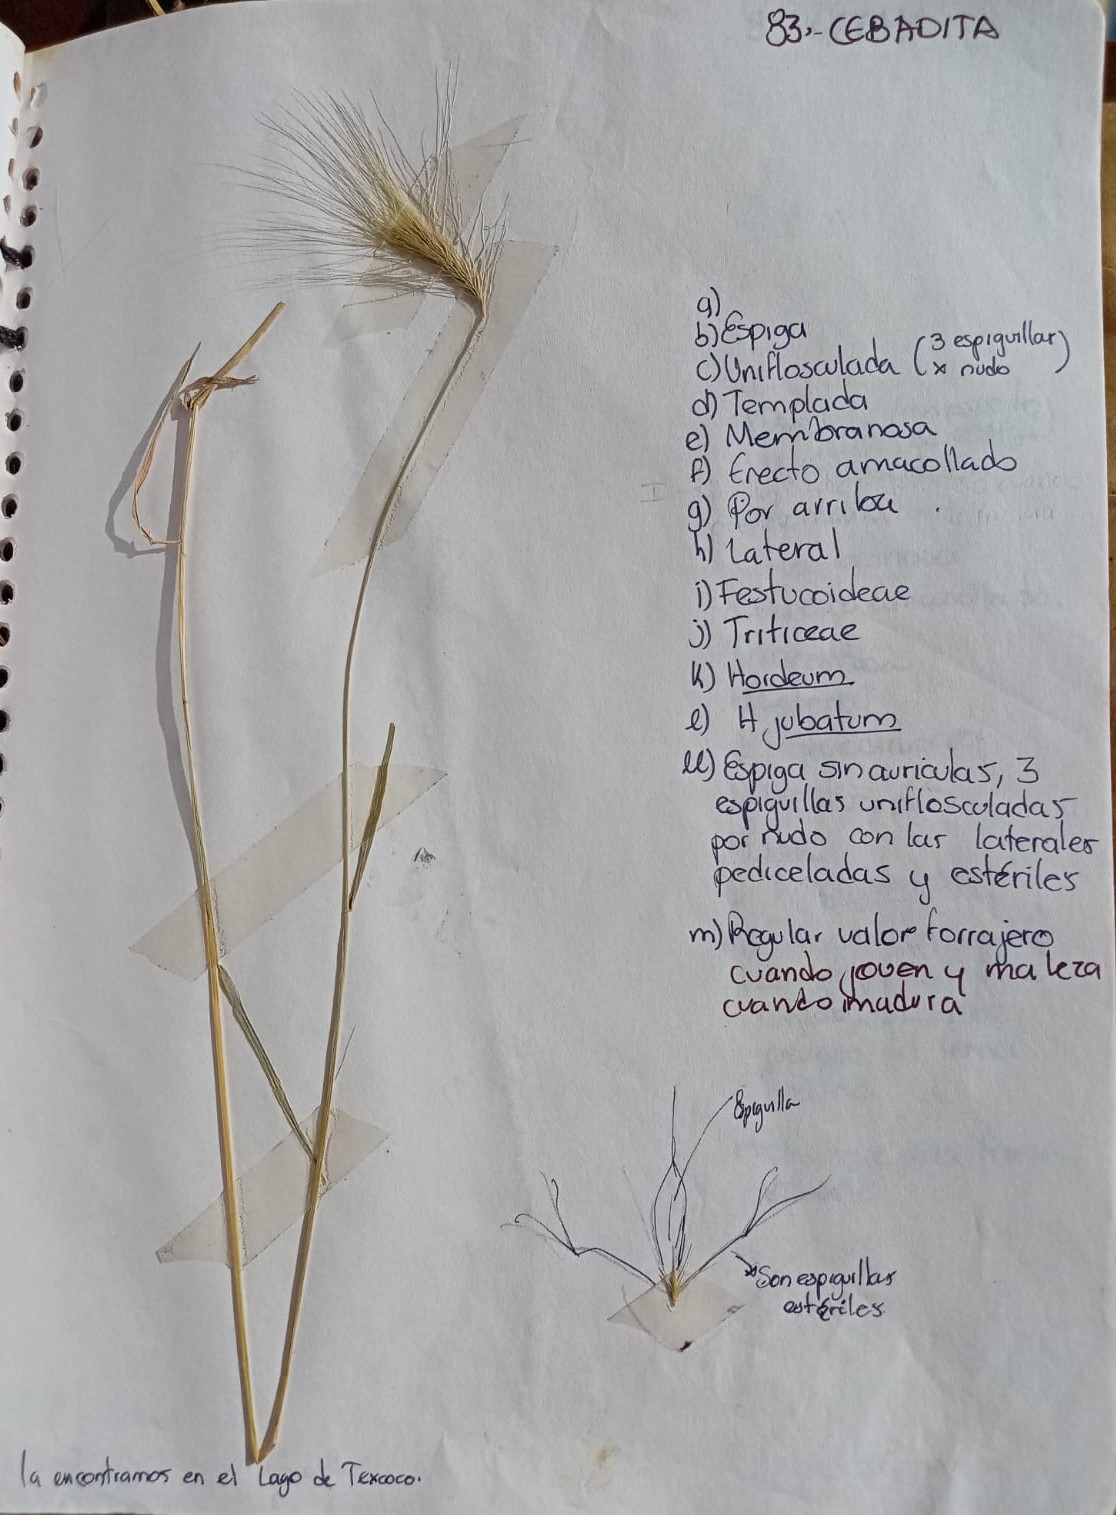 83.- CEBADITA
a)
b) Espiga
c) Uniflosculada (3 espiguillar x nudo)
d) Templada
e) Membranosa
f) Erecto amacollado
g) Por arriba .
h) Lateral
i) Festucoideae
j) Triticeae
k) Hordeum
l) H jubatum
ll) Espiga sin auriculas, 3
espiguillas uniflosculadas
por nudo con las laterales
pediceladas y estériles
m) Regular valor forrajero
cuando joven y maleza
cuando madura
Espiguilla
Son espiguillas
estériles
la encontramos en el Lago de Texcoco.